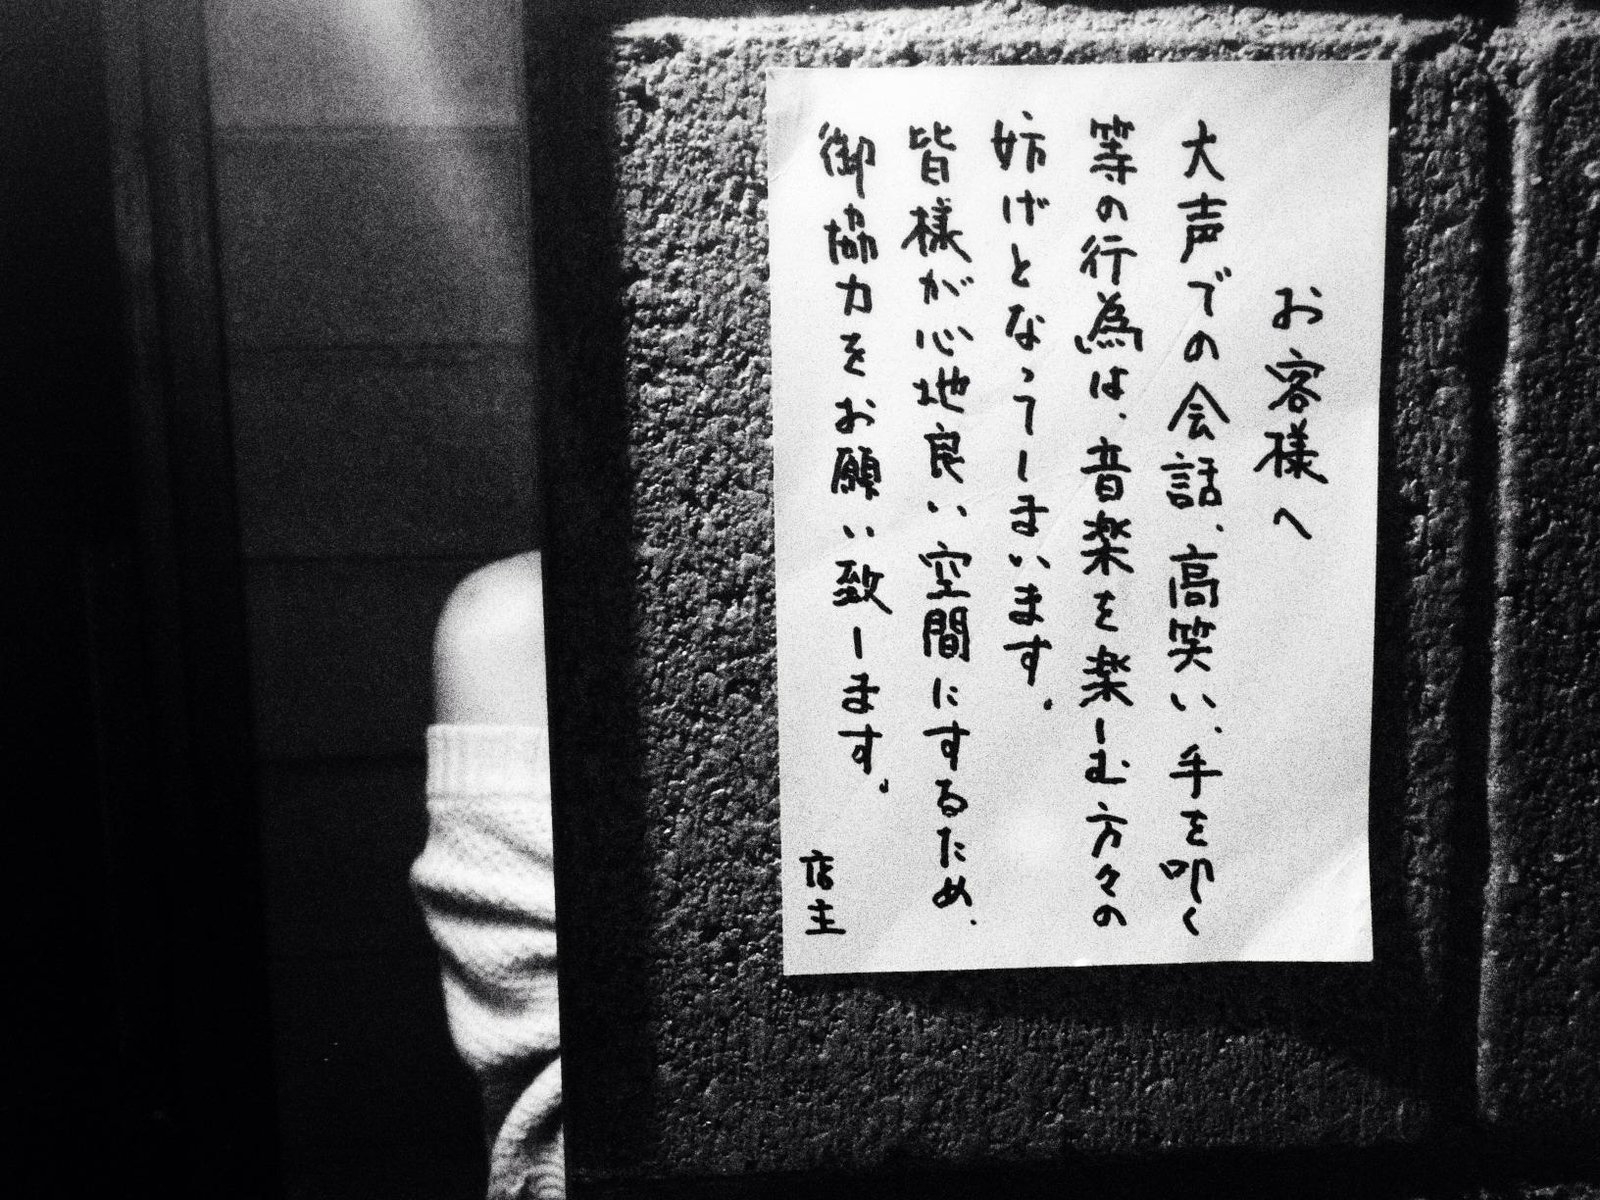 お客様へ
大声での会話、高笑い、手を叩く
等の行為は、音楽を楽しむ方々の
妨げとなってしまいます。
皆様が心地良い空間にするため、
御協力をお願い致します。
店主